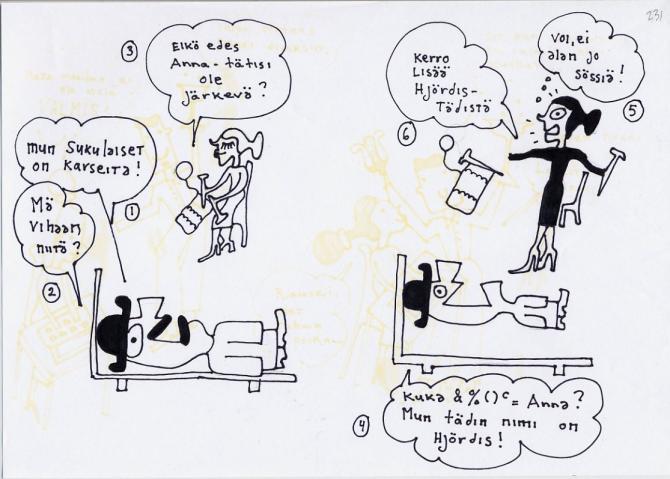 231
①
mun sukulaiset
on karseita!
②
Mä
vihaan
niitä?
③
Eikö edes
Anna-tätisi
ole
järkevä?
④
Kuka &%()c= Anna?
Mun tädin nimi on
Hjördis!
⑤
Voi, ei
alan jo
sössiä!
⑥
Kerro
Lisää
Hjördis-
Tädistä